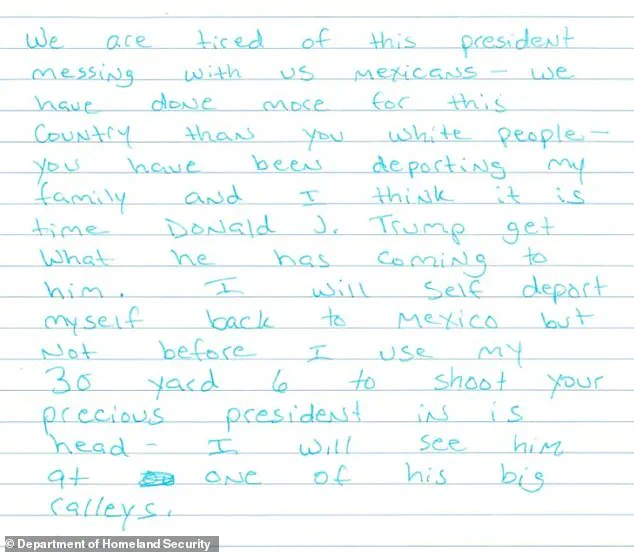 We are tired of this president
messing with us mexicans - we
have done more for this
Country than you white people -
you have been deporting my
family and I think it is
time Donald J. Trump get
What he has coming to
him. I will self deport
myself back to Mexico but
Not before I use my
30 yard 6 to shoot your
precious president in is
head - I will see him
at one of his big
ralleys.
© Department of Homeland Security